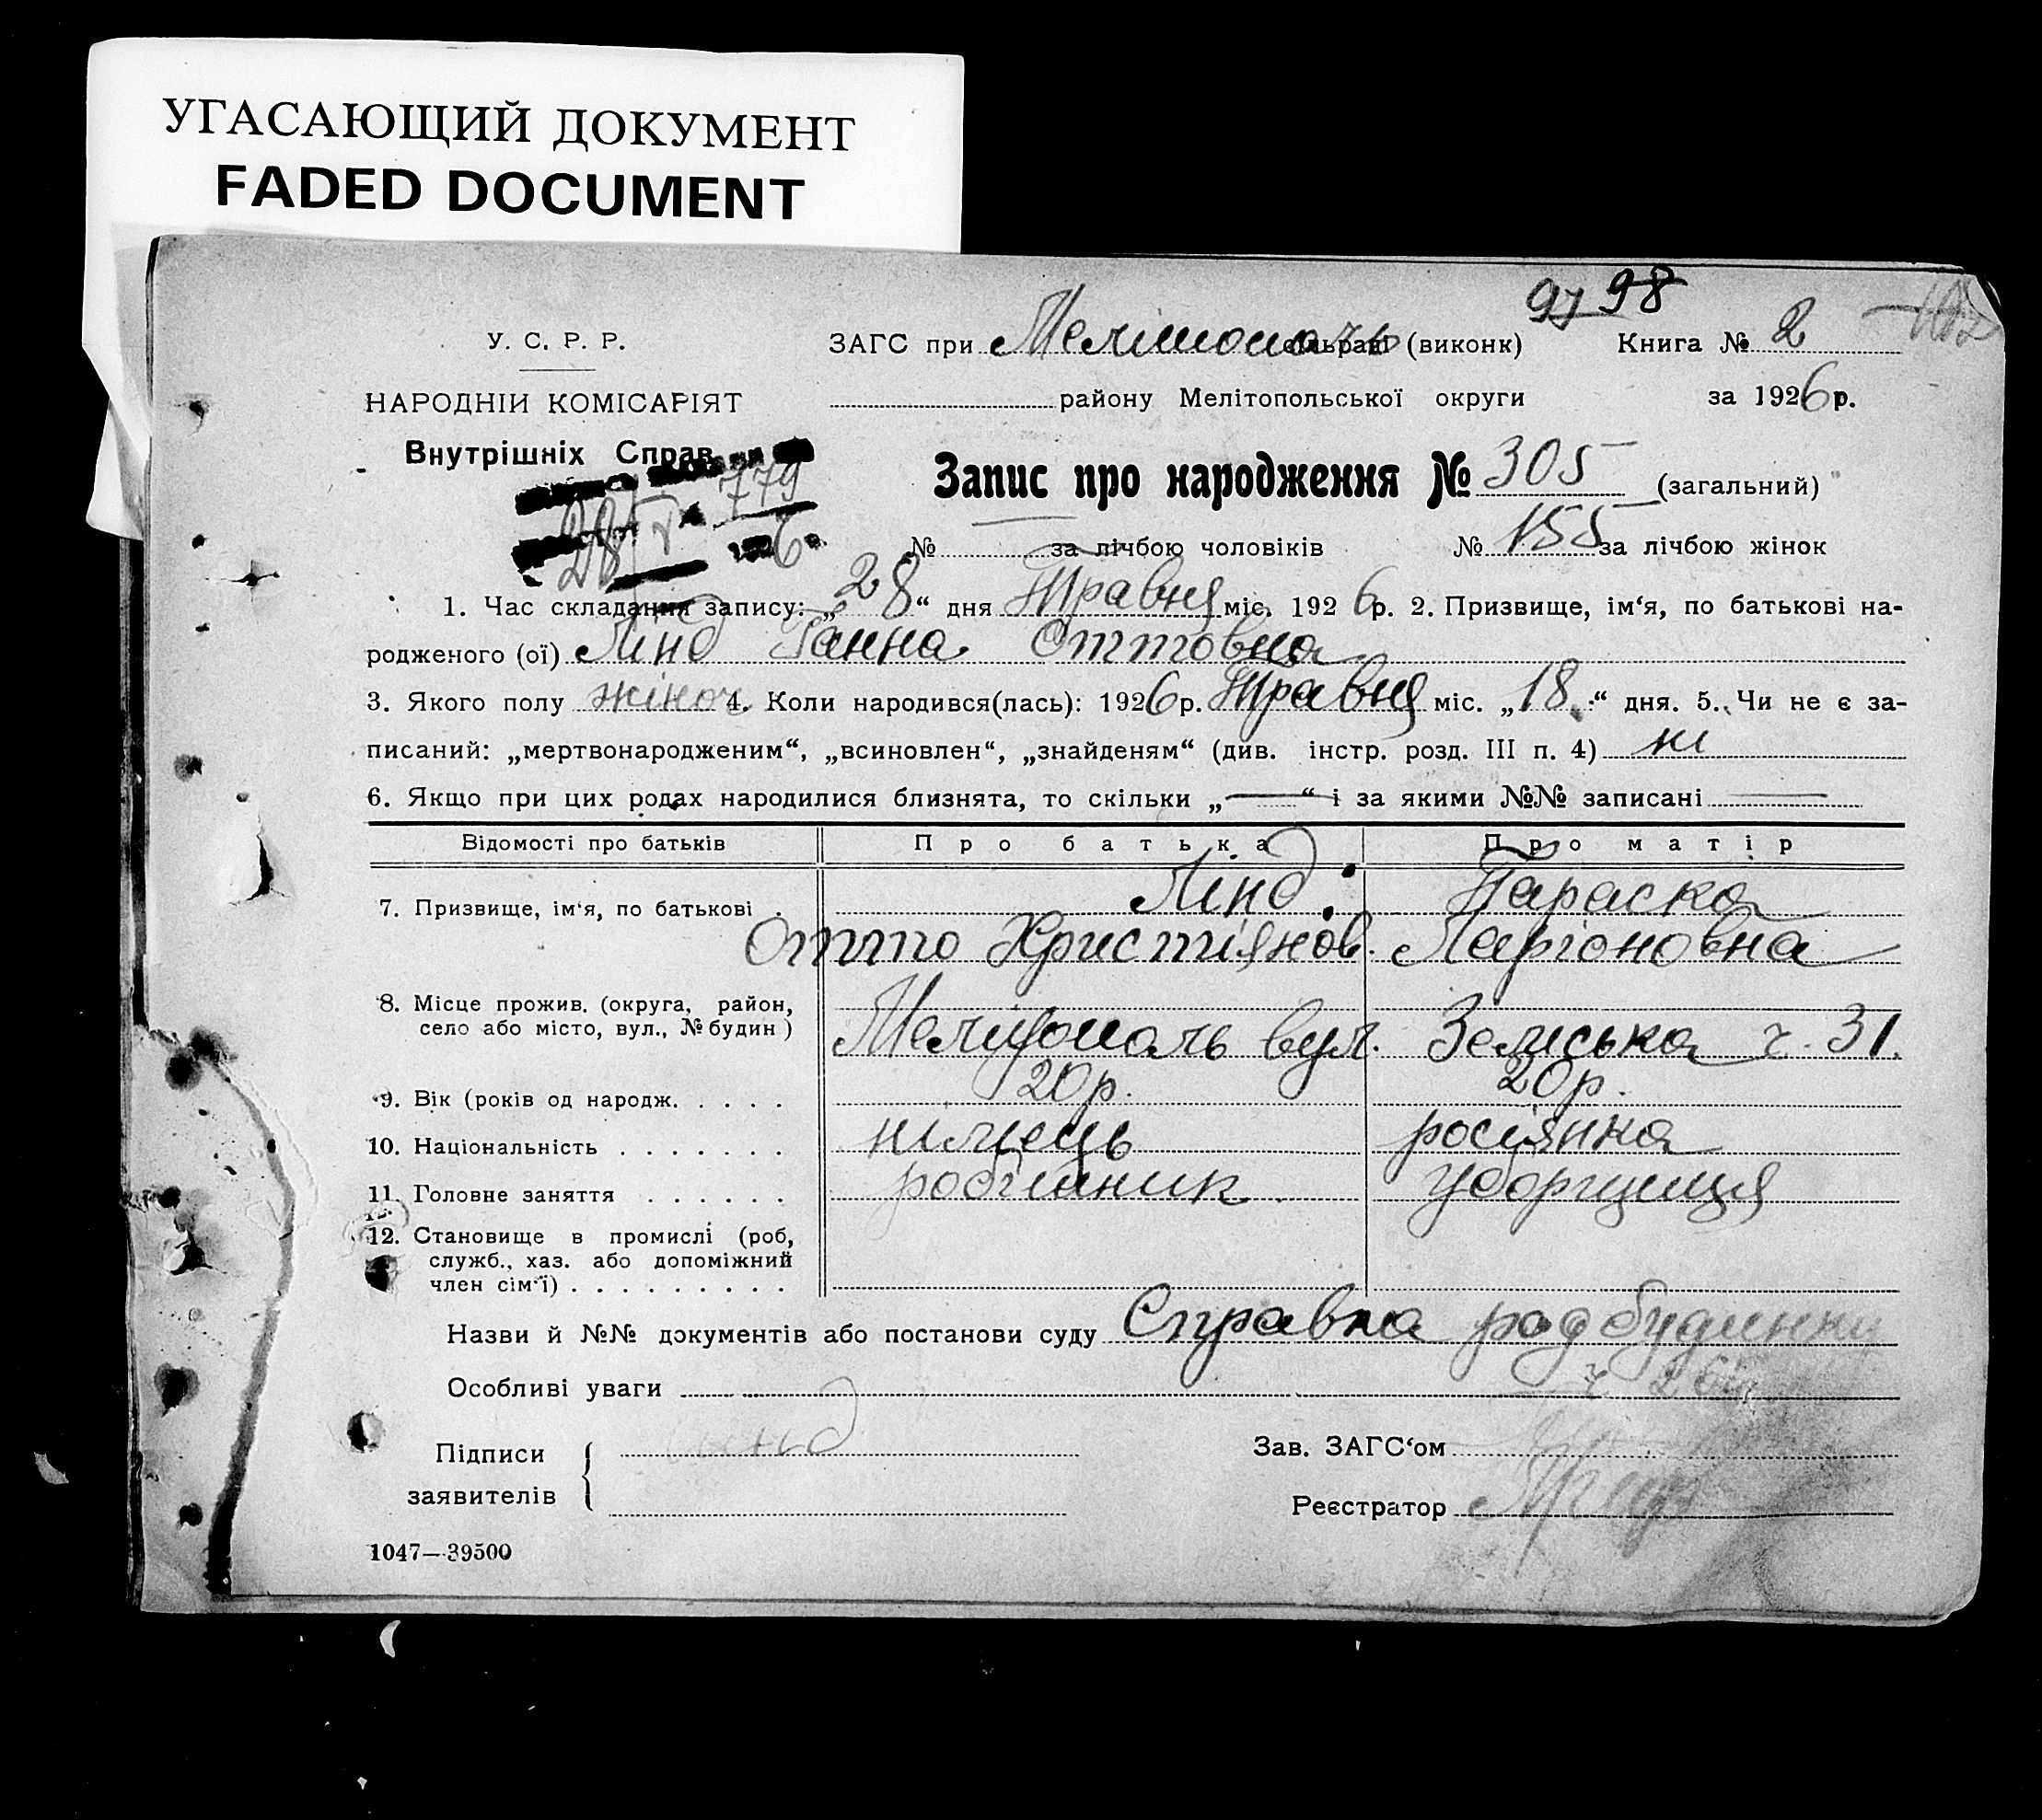 УГАСАЮЩИЙ ДОКУМЕНТ
FADED DOCUMENT
97 98
У. С. Р. Р.
ЗАГС при Мелітополь сільраді (виконк) Книга № 2
НАРОДНІИ КОМІСАРІЯТ
району Мелітопольської округи за 1926 р.
Внутрішніх Справ
779
28/V 1926 р.
Запис про народження № 305 (загальний)
№ за лічбою чоловіків № 155 за лічбою жінок
1. Час складання запису: „28“ дня Травня міс. 1926 р. 2. Призвище, ім‘я, по батькові на-
родженого (ої) Лінд Ганна Оттовна
3. Якого полу жіноч 4. Коли народився(лась): 1926 р. Травня міс. „18“ дня. 5. Чи не є за-
писаний: „мертвонародженим“, „всиновлен“, „знайденям“ (див. інстр. розд. III п. 4) ні
6. Якщо при цих родах народилися близнята, то скільки „—“ і за якими №№ записані —
Відомості про батьків Про батька Про матір
7. Призвище, ім‘я, по батькові . Лінд. Параска
Отто Христіянов. Ларіоновна
8. Місце прожив. (округа, район,
село або місто, вул., № будин) Мелітополь вул. Земська ч. 31.
9. Вік (років од народж. . . . . 20 р. 20 р.
10. Національність . . . . . . . німець росіянка
11. Головне заняття . . . . . . робітник уборщиця
12. Становище в промислі (роб,
служб., хаз. або допоміжний
член сім‘ї) . . . . . . . . .
Назви й №№ документів або постанови суду Справка родбудинку
Особливі уваги
Підписи
заявителів
Лінд
Зав. ЗАГС‘ом
Реєстратор
1047—39500